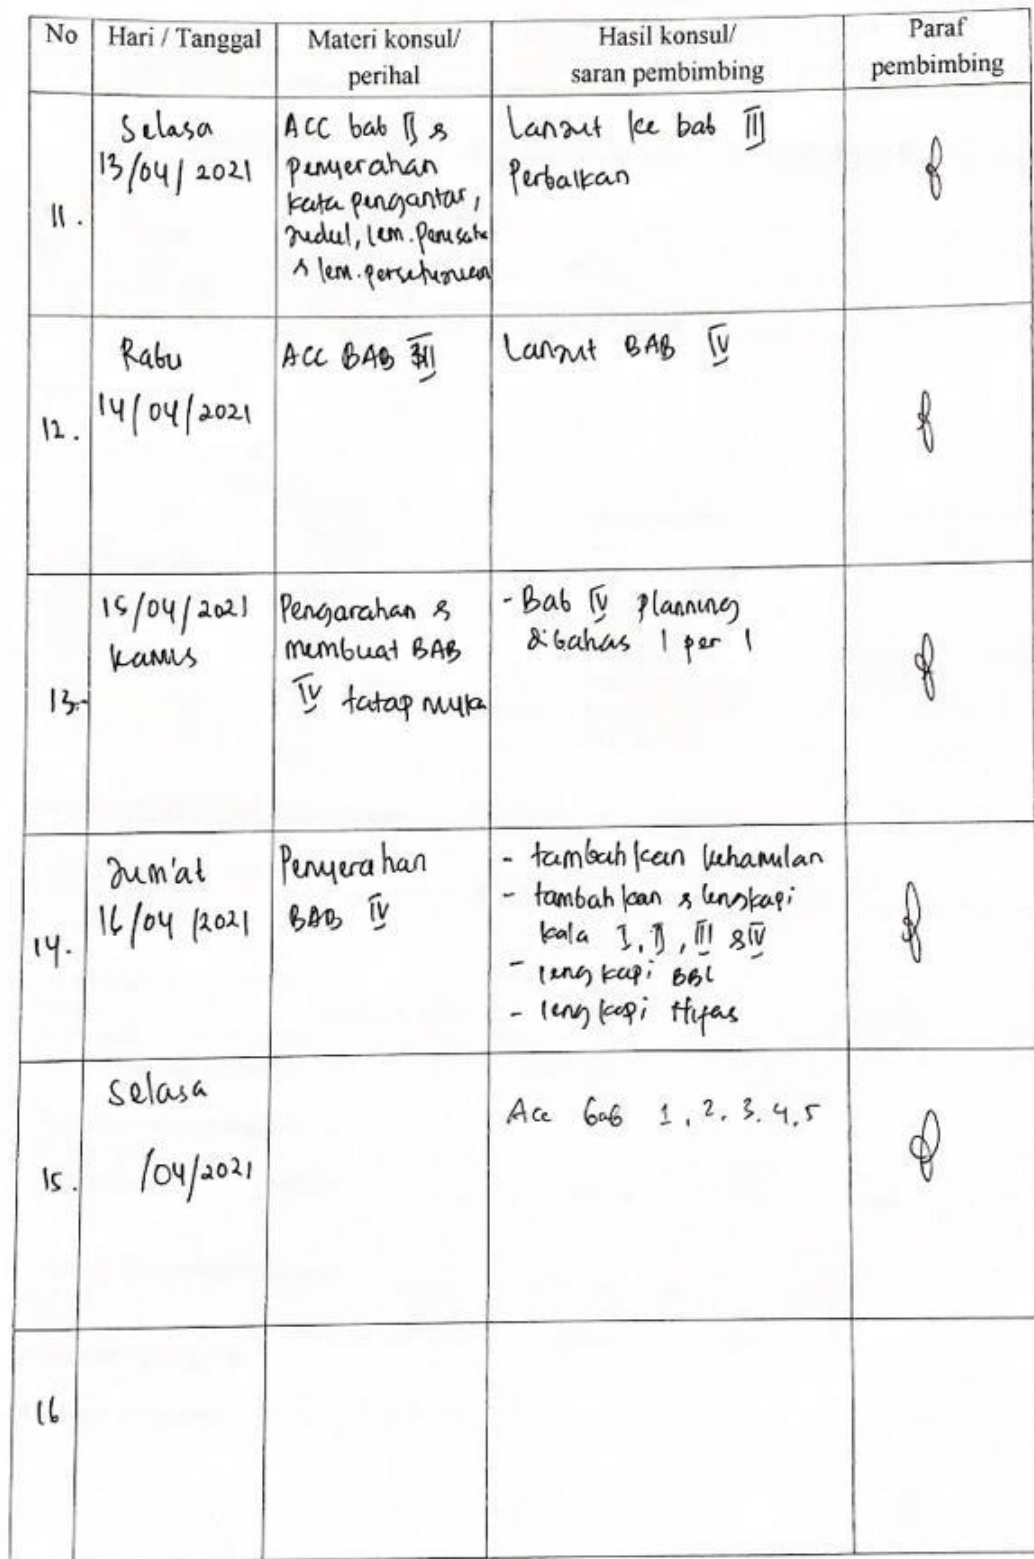 No Hari / Tanggal Materi konsul/ perihal Hasil konsul/ saran pembimbing Paraf pembimbing
11. Selasa
13/04/2021
ACC bab II &
penyerahan
kata pengantar,
judul, lem.
& lem. persetujuan
Lanjut ke bab III
Perbaikan
12. Rabu
14/04/2021
ACC BAB III
Lanjut BAB IV
13. 15/04/2021
Kamis
Pengarahan &
membuat BAB
IV tatap muka
- Bab IV planning
dibahas 1 per 1
14. Jum'at
16/04/2021
Penyerahan
BAB IV
- tambahkan kehamilan
- tambahkan & lengkapi
kala I, II, III & IV
- lengkapi BBL
- lengkapi Nifas
15. Selasa
/04/2021
Acc bab 1, 2, 3, 4, 5
16